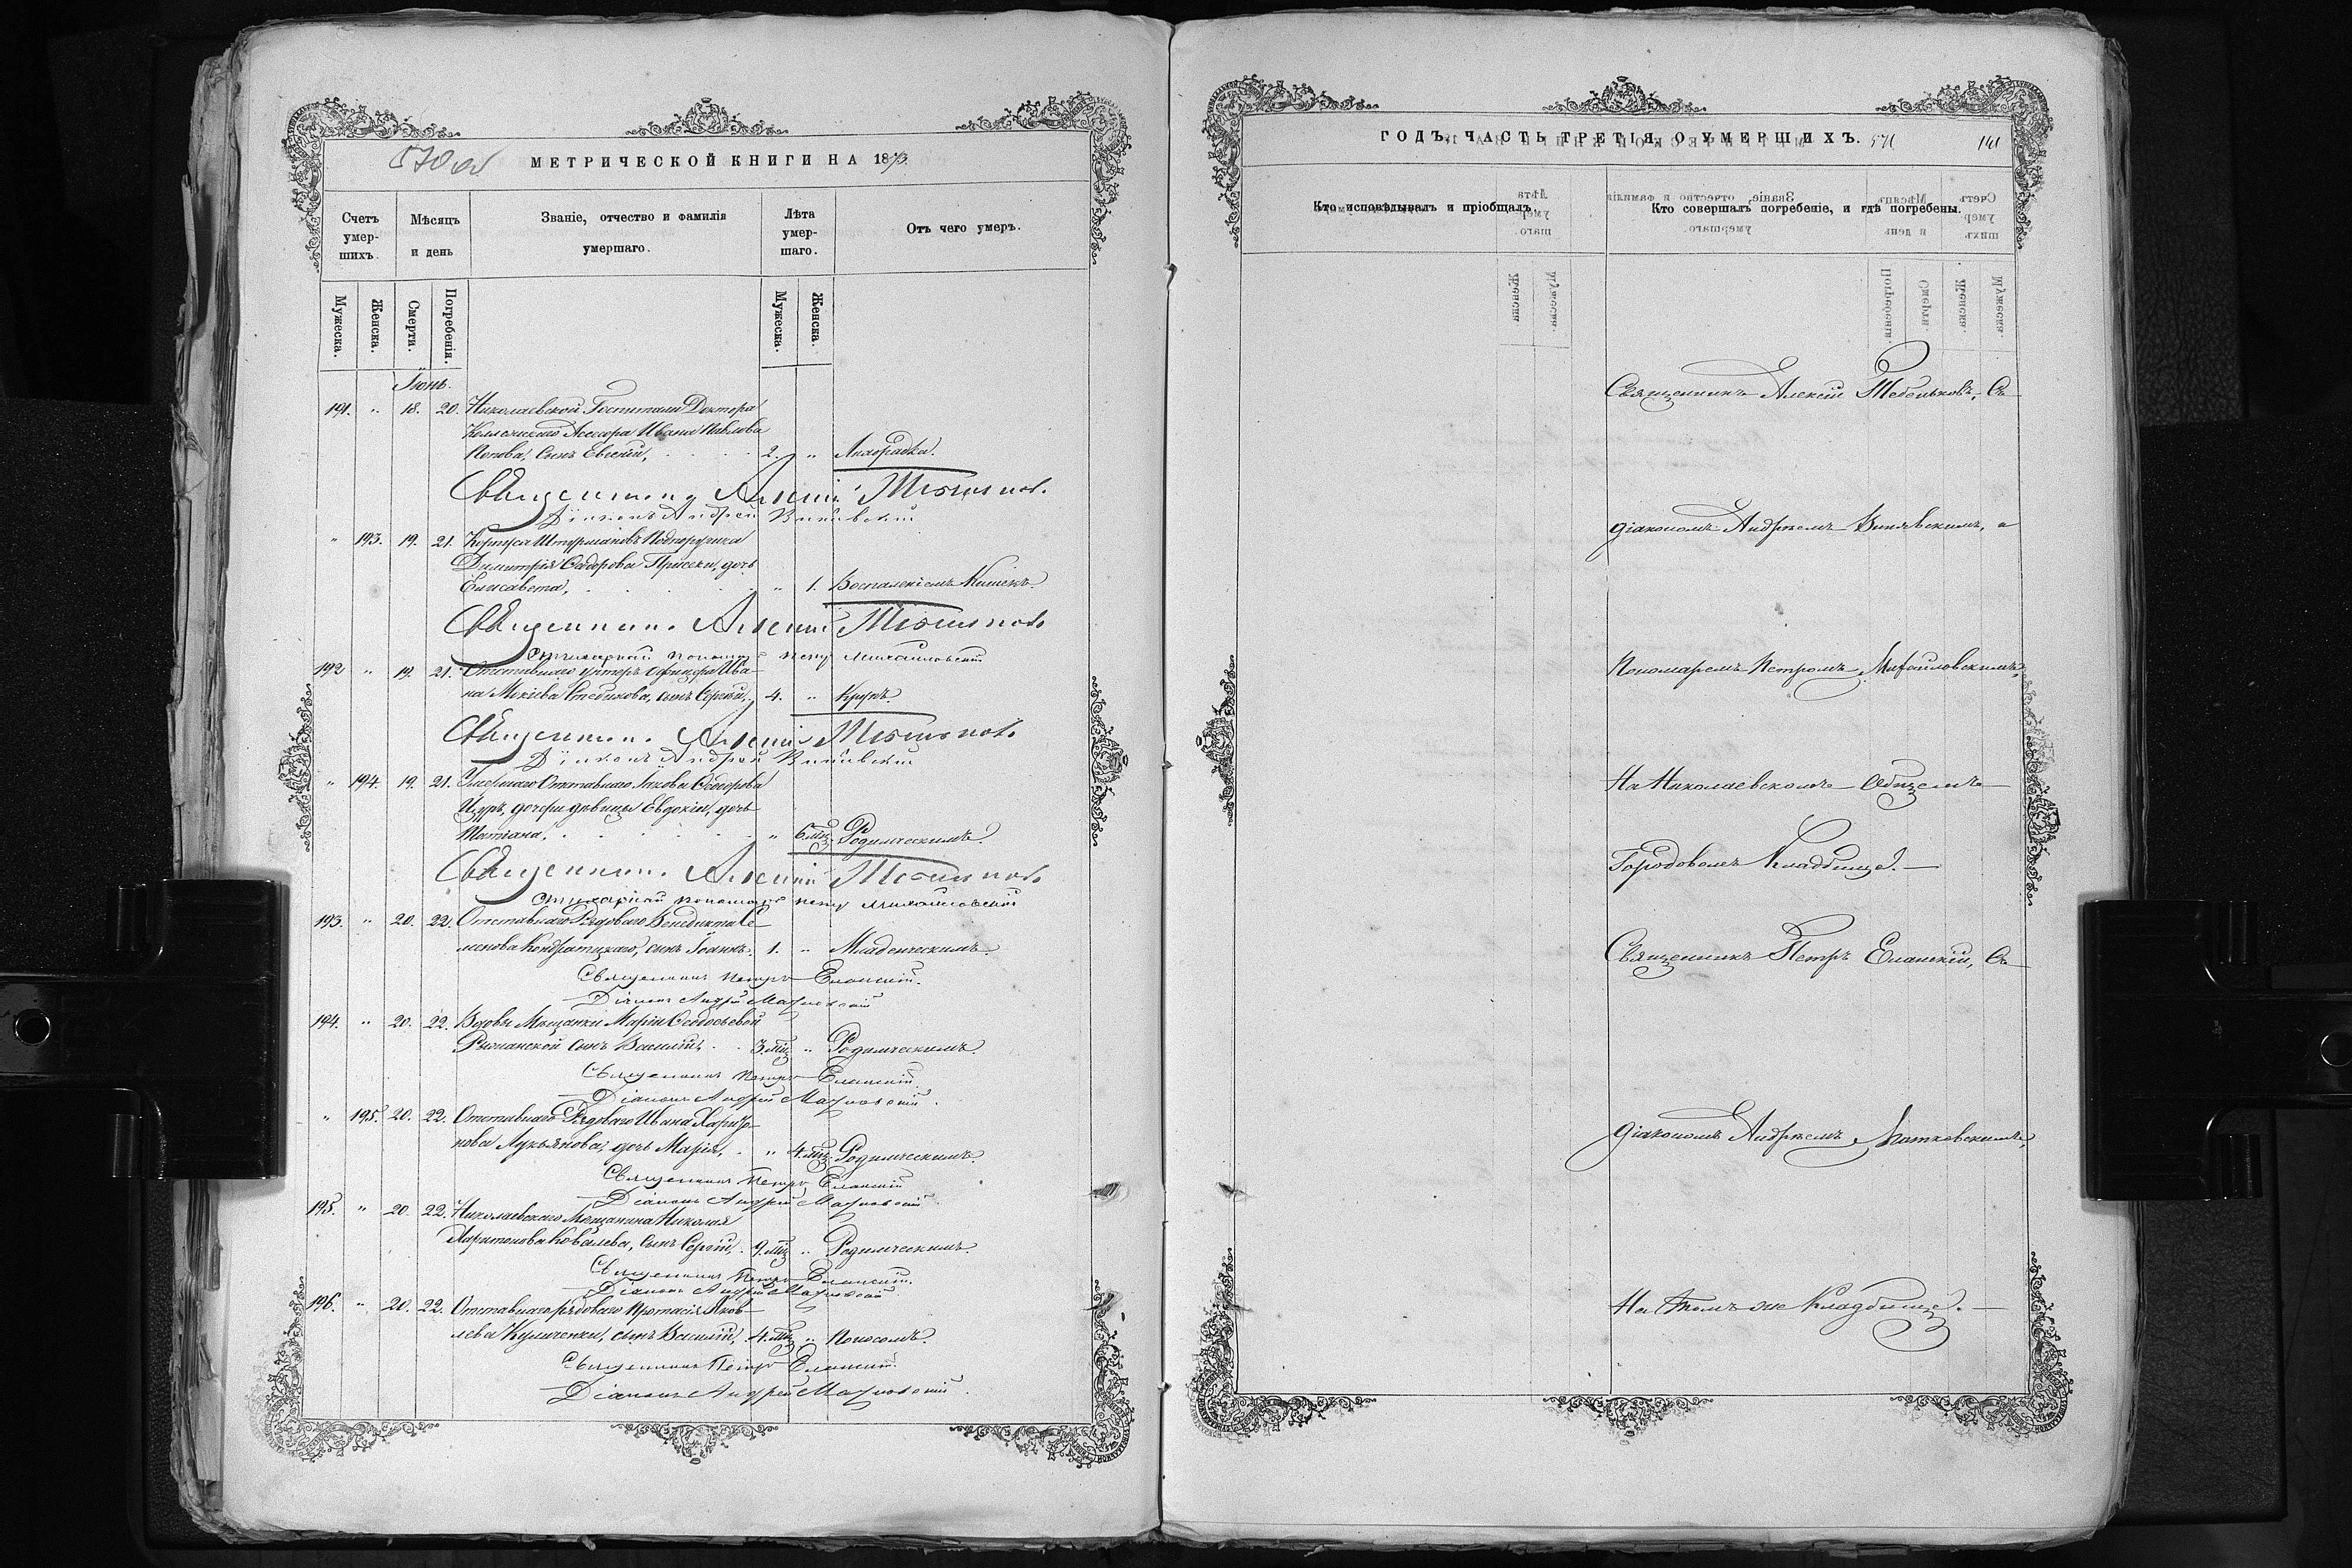 570 об
МЕТРИЧЕСКОЙ КНИГИ НА 18
Счетъ умер-шихъ.
Мѣсяцъ и день
Званіе, отчество и фамилія умершаго.
Лѣта умер-шаго.
Отъ чего умеръ.
Мужеска.
Женска.
Смерти.
Погребенія.
Мужеска.
Женска.
Іюнь.
191. " 18. 20. Николаевской Госпитали Доктора
Коллежскаго Асесора Ивана Павлова
Попова, сынъ Евгеній, 2. " Лихорадка.
Священникъ Алексій
Діаконъ Андрей
" 193. 19. 21. Корпуса Штурмановъ Подпоручика
Димитрія Ѳедорова Присеки, дочь
Елисавета, " 1. Воспаленіемъ Кишекъ.
Священникъ Алексій
Стихарный пономарь Петр Михайловскій
192 " 19. 21. Отставнаго унтеръ офицера Ива-
на сынъ Сергій, 4. " Крупъ.
Священникъ Алексій
Діаконъ Андрей
" 194. 19. 21. Умершаго Отставнаго Іакова Ѳедорова
дочери дѣвицы Евдокіи, дочь
Татіана, " 6 мѣц. Родимческимъ.
Священникъ Алексій
Стихарный пономарь Петр Михайловскій
193. " 20. 22. Отставнаго Рядоваго Бенедикта Се-
менова Кондратицкаго, сынъ Іоаннъ. 1. " Младенческимъ.
Священникъ Петръ Еланскій.
Діаконъ Андрей
194. " 20. 22. Вдовы Мѣщанки Маріи Ѳедосьевой
сынъ Василій 3 мѣц " Родимческимъ.
Священникъ Петръ Еланскій
Діаконъ Андрей
" 195. 20. 22. Отставнаго Рядоваго Ивана Харито-
нова Лукьянова, дочь Марія, " 4 мѣц. Родимческимъ.
Священникъ Петръ Еланскій
Діаконъ Андрей
195. " 20. 22. Николаевскаго Мѣщанина Николая
Харитонова Ковалева, сынъ Сергій, 9 мѣц " Родимческимъ.
Священникъ Петръ Еланскій.
Діаконъ Андрей
196. " 20. 22. Отставнаго рядоваго Протасія Яков-
лева Куличенки, сынъ Василій, 4 мѣц " Поносомъ.
Священникъ Петръ Еланскій.
Діаконъ Андрей
ГОДЪ, ЧАСТЬ ТРЕТІЯ, О УМЕРШИХЪ. 571 141
Кто исповѣдывалъ и пріобщалъ.
Кто совершалъ погребеніе, и гдѣ погребены.
Священникъ Алексій Съ
діакономъ Андреемъ и
Пономаремъ Петромъ Михайловскимъ,
На Николаевскомъ Общемъ
Городовомъ Кладбищѣ.
Священникъ Петръ Еланскій, Съ
діакономъ Андреемъ
На томъ же Кладбищѣ.